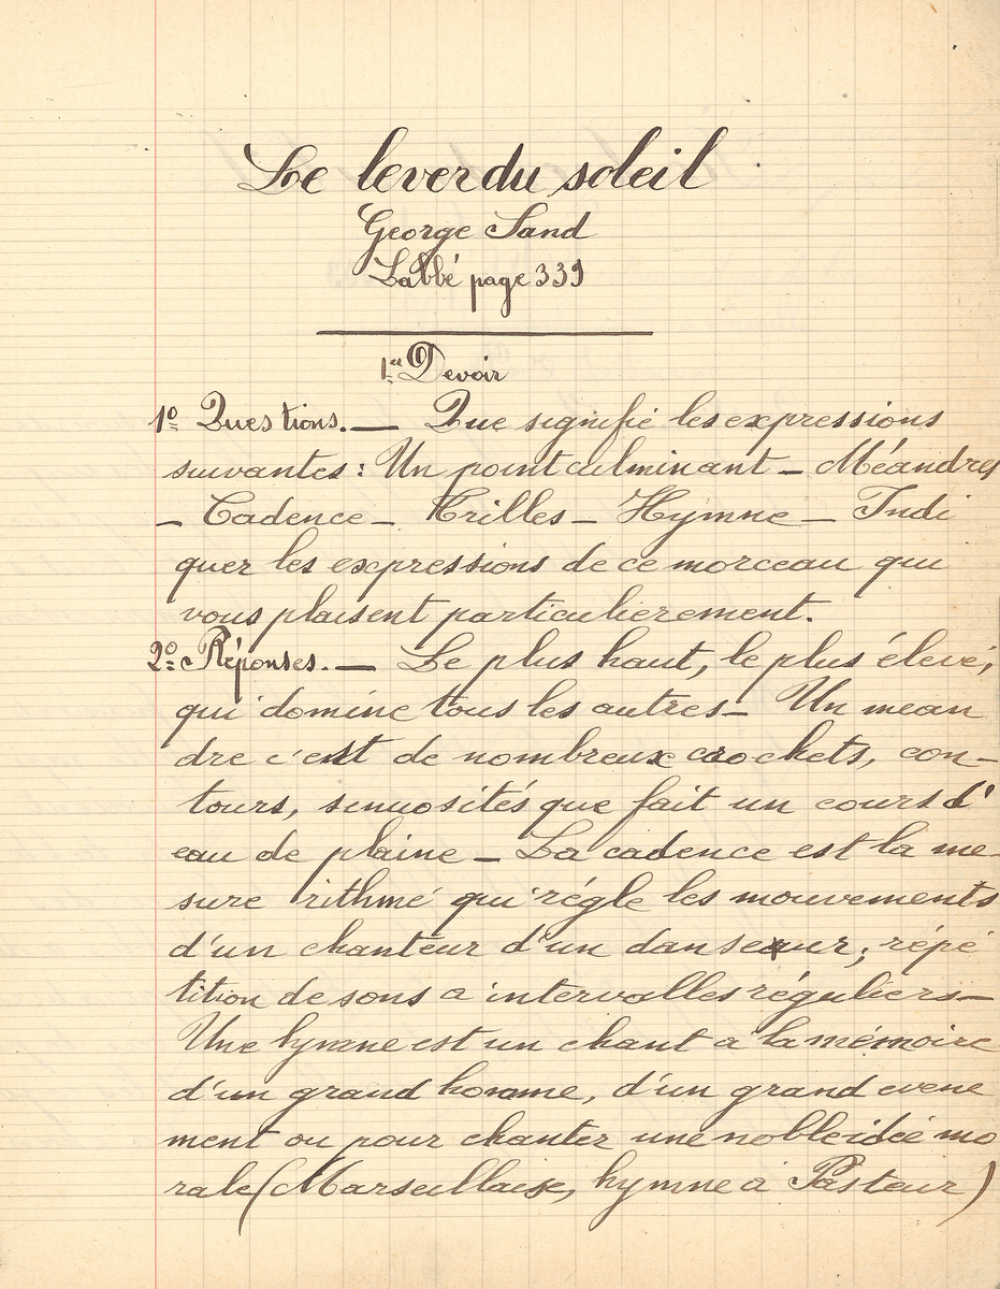 Le lever du soleil
George Sand
Labbé page 339
1er Devoir
1º Questions. — Que signifie les expressions
suivantes : Un point culminant — Méandres
— Cadence — Trilles — Hymne — Indi
quer les expressions de ce morceau qui
vous plaisent particulierement.
2º Réponses. — Le plus haut, le plus élevé,
qui domine tous les autres — Un mean
dre c'est de nombreux crochets, con-
tours, sinuosités que fait un cours d'
eau de plaine — La cadence est la me-
sure rithmé qui régle les mouvements
d'un chanteur d'un danseur ; répé
tition de sons a intervalles réguliers —
Une hymne est un chant a la mémoire
d'un grand homme, d'un grand evene
ment ou pour chanter une noble idée mo
rale (Marseillaise, hymne a Pasteur)